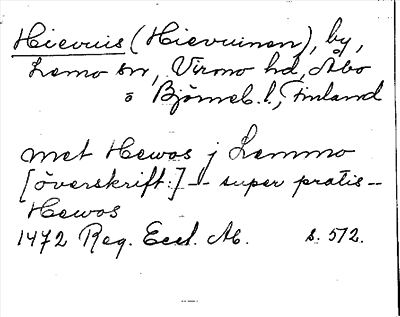 Hievuis (Hievuinen), by,
Lemo sn, Virmo hd, Åbo
o Björneb. l., Finland
met Hewos j Lemmo
[överskrift:] -- super pratis --
Hewos
1472 Reg. Eccl. Ab. s. 512.